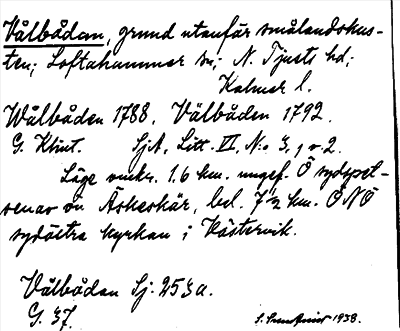 Vålbådan, grund utanför smålandskus-
ten; Loftahammar sn; N. Tjusts hd;
Kalmar l.
Wålbåden 1788. Välbåden 1792.
G. Klint. SjA, Litt. VI, No 3, 1 o 2.
Läge omkr. 1.6 km. ungef. O sydspet-
sen av ön Äskeskär, bel. 7 1/2 km. ONO
sydöstra kyrkan i Västervik.
Vålbådan Sj. 253a.
G. 37.
1938.